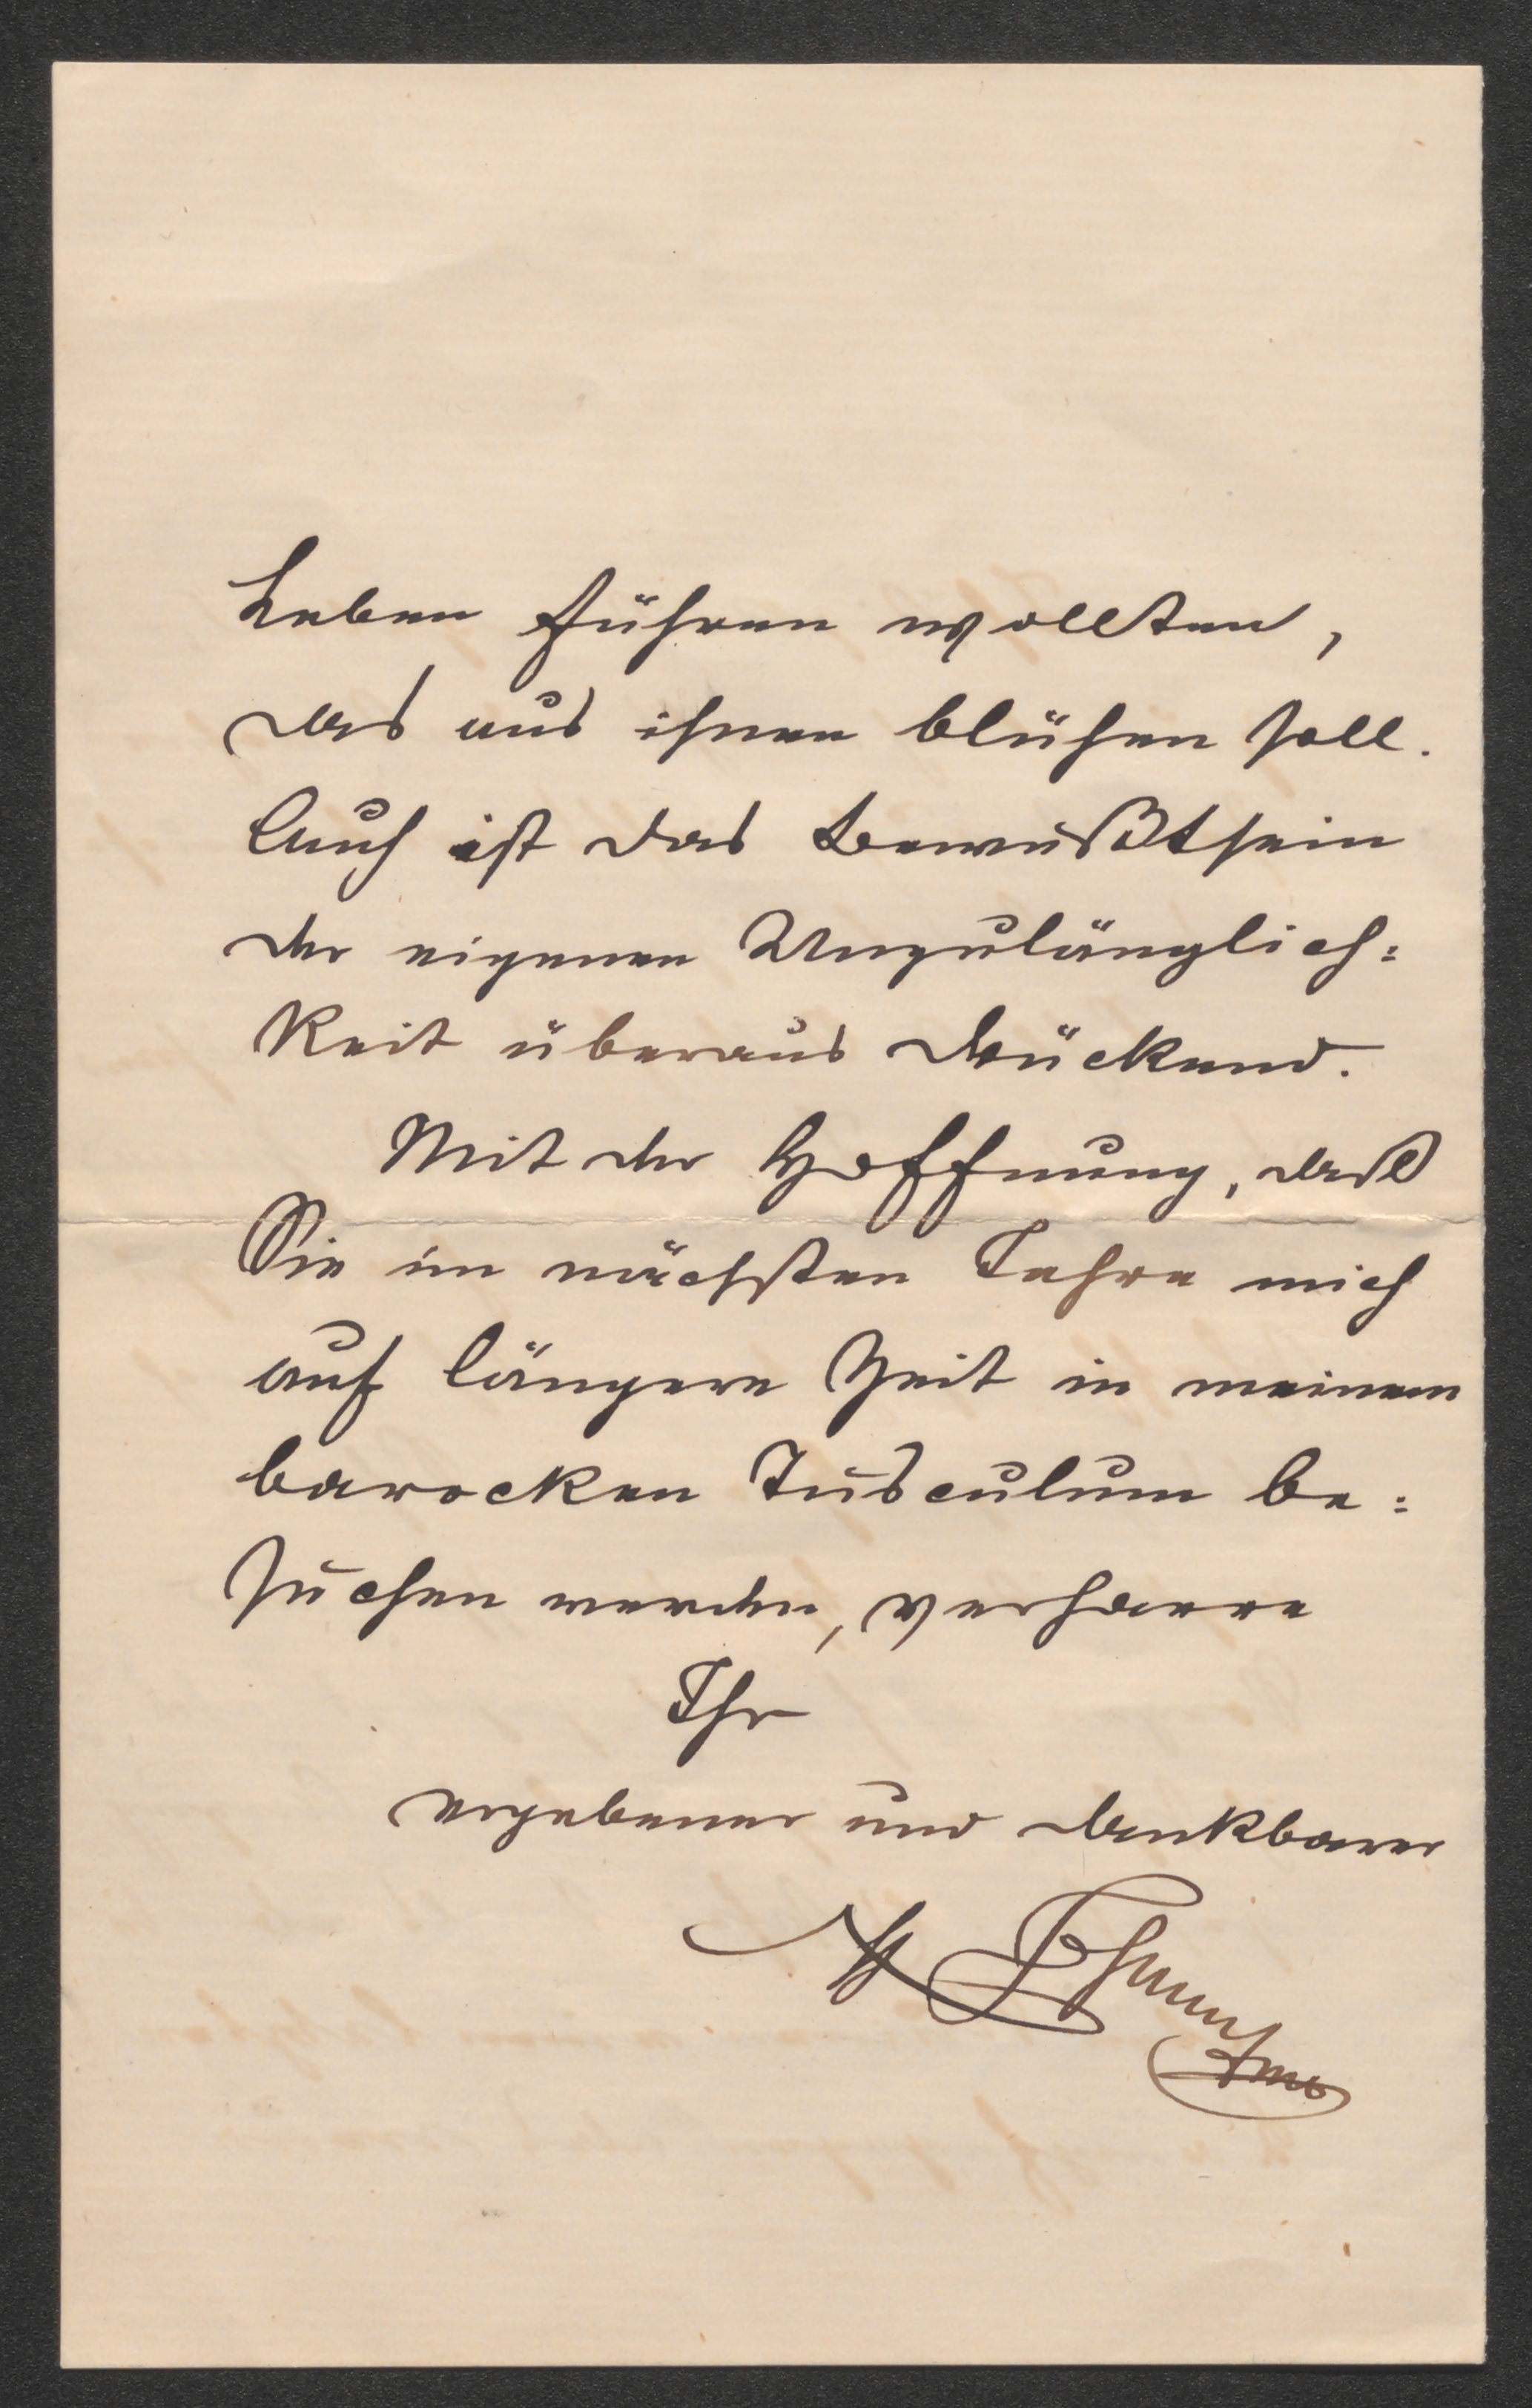 Leben führen wollten,
das aus ihnen blühen soll.
Auch ist das Bewußtsein
der eigenen Unzulänglich=
keit überaus drückend.
Mit der Hoffnung, daß
Sie im nächsten Jahre mich
auf längere Zeit in meinem
barocken Tusculum be=
suchen werden, verharre
Ihr
ergebener und dankbarer